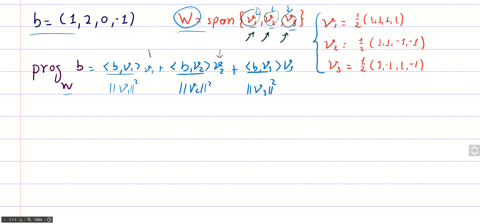 b = (1, 2, 0, -1)
W = span {v₁, v₂, v₃}
v₁ = 1/2 (1, 1, 1, 1)
v₂ = 1/2 (1, 1, -1, -1)
v₃ = 1/2 (1, -1, 1, -1)
proj_W b = <b, v₁> v₁ / ||v₁||² + <b, v₂> v₂ / ||v₂||² + <b, v₃> v₃ / ||v₃||²